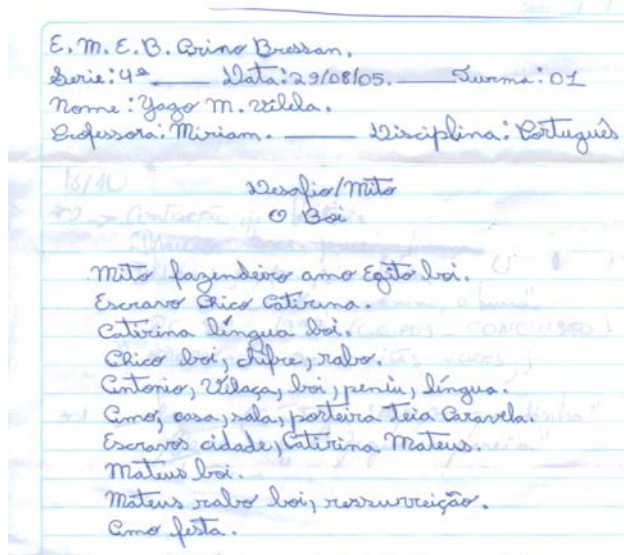 E. M. E. B. Arino Bressan.
Serie: 4ª Data: 29/08/05. Turma: 01
Nome: Yago M. Vilela.
Professora: Miriam. Disciplina: Português
Desafio/Mito
O Boi
Mito fazendeiro amo Egito boi.
Escravo Chico Catirina.
Catirina língua boi.
Chico boi, chifre, rabo.
Antonio, Vilaça, boi, língua.
Amo, casa, sala, porteira Teia Caravela.
Escravos cidade, Catirina Mateus.
Mateus boi.
Mateus rabo boi, ressurreição.
Amo festa.